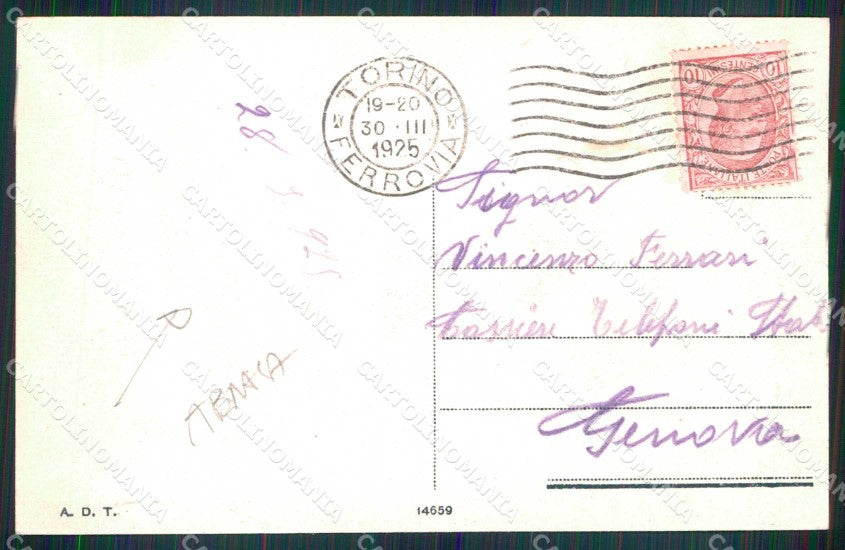 TORINO
19-20
30·III
1925
FERROVIA
10 CENTESIMI 10
POSTE ITALIANE
28 3 925
Signor
Vincenzo Ferrari
Cassiere Telefoni Stato
Genova
A. D. T.
14659
CARTOLINOMANIA